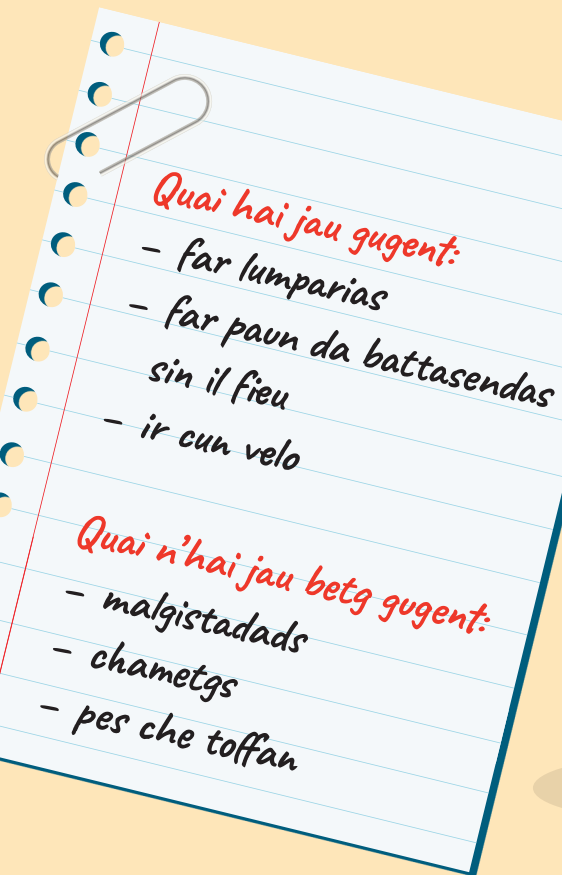 Quai hai jau gugent:
– far lumparias
– far paun da battasendas
sin il fieu
– ir cun velo
Quai n'hai jau betg gugent:
– malgistadads
– chametgs
– pes che toffan